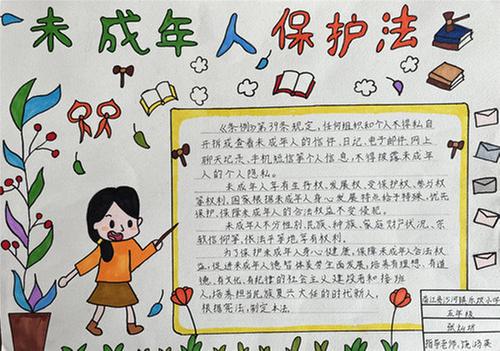 未成年人保护法
《条例》第39条规定,任何组织和个人不得私自
开拆或查看未成年人的信件、日记、电子邮件、网上
聊天记录、手机短信等个人信息,不得披露未成年
人的个人隐私。
未成年人享有生存权、发展权、受保护权、参与权
等权利,国家根据未成年人身心发展特点给予特殊、优先
保护,保障未成年人的合法权益不受侵犯。
未成年人不分性别、民族、种族、家庭财产状况、宗
教信仰等,依法平等地享有权利。
为了保护未成年人身心健康,保障未成年人合法权
益,促进未成年人德智体美劳全面发展,培养有理想、有道
德、有文化、有纪律的社会主义建设者和接班
人,培养担当民族复兴大任的时代新人,
根据宪法,制定本法。
五年级
指导老师: